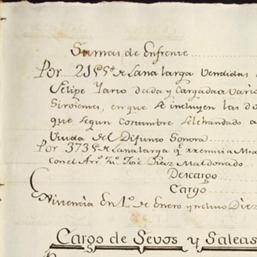 Sumas de Enfrente
Por 21 @ de Lana larga Vendidas
Felipe Yario dada y Cargada a varios
Sirvientes, en que se incluyen las do
que segun Costumbre se le han dado a
Viuda del Difunto Sonora
Por 373 @ de Lana larga q.
con el Arr.º D.n José Diaz Maldonado
Descargo
Cargo
Vivencia En 1.º de Enero y incluso Diez
Cargo de Sevos y Galeas